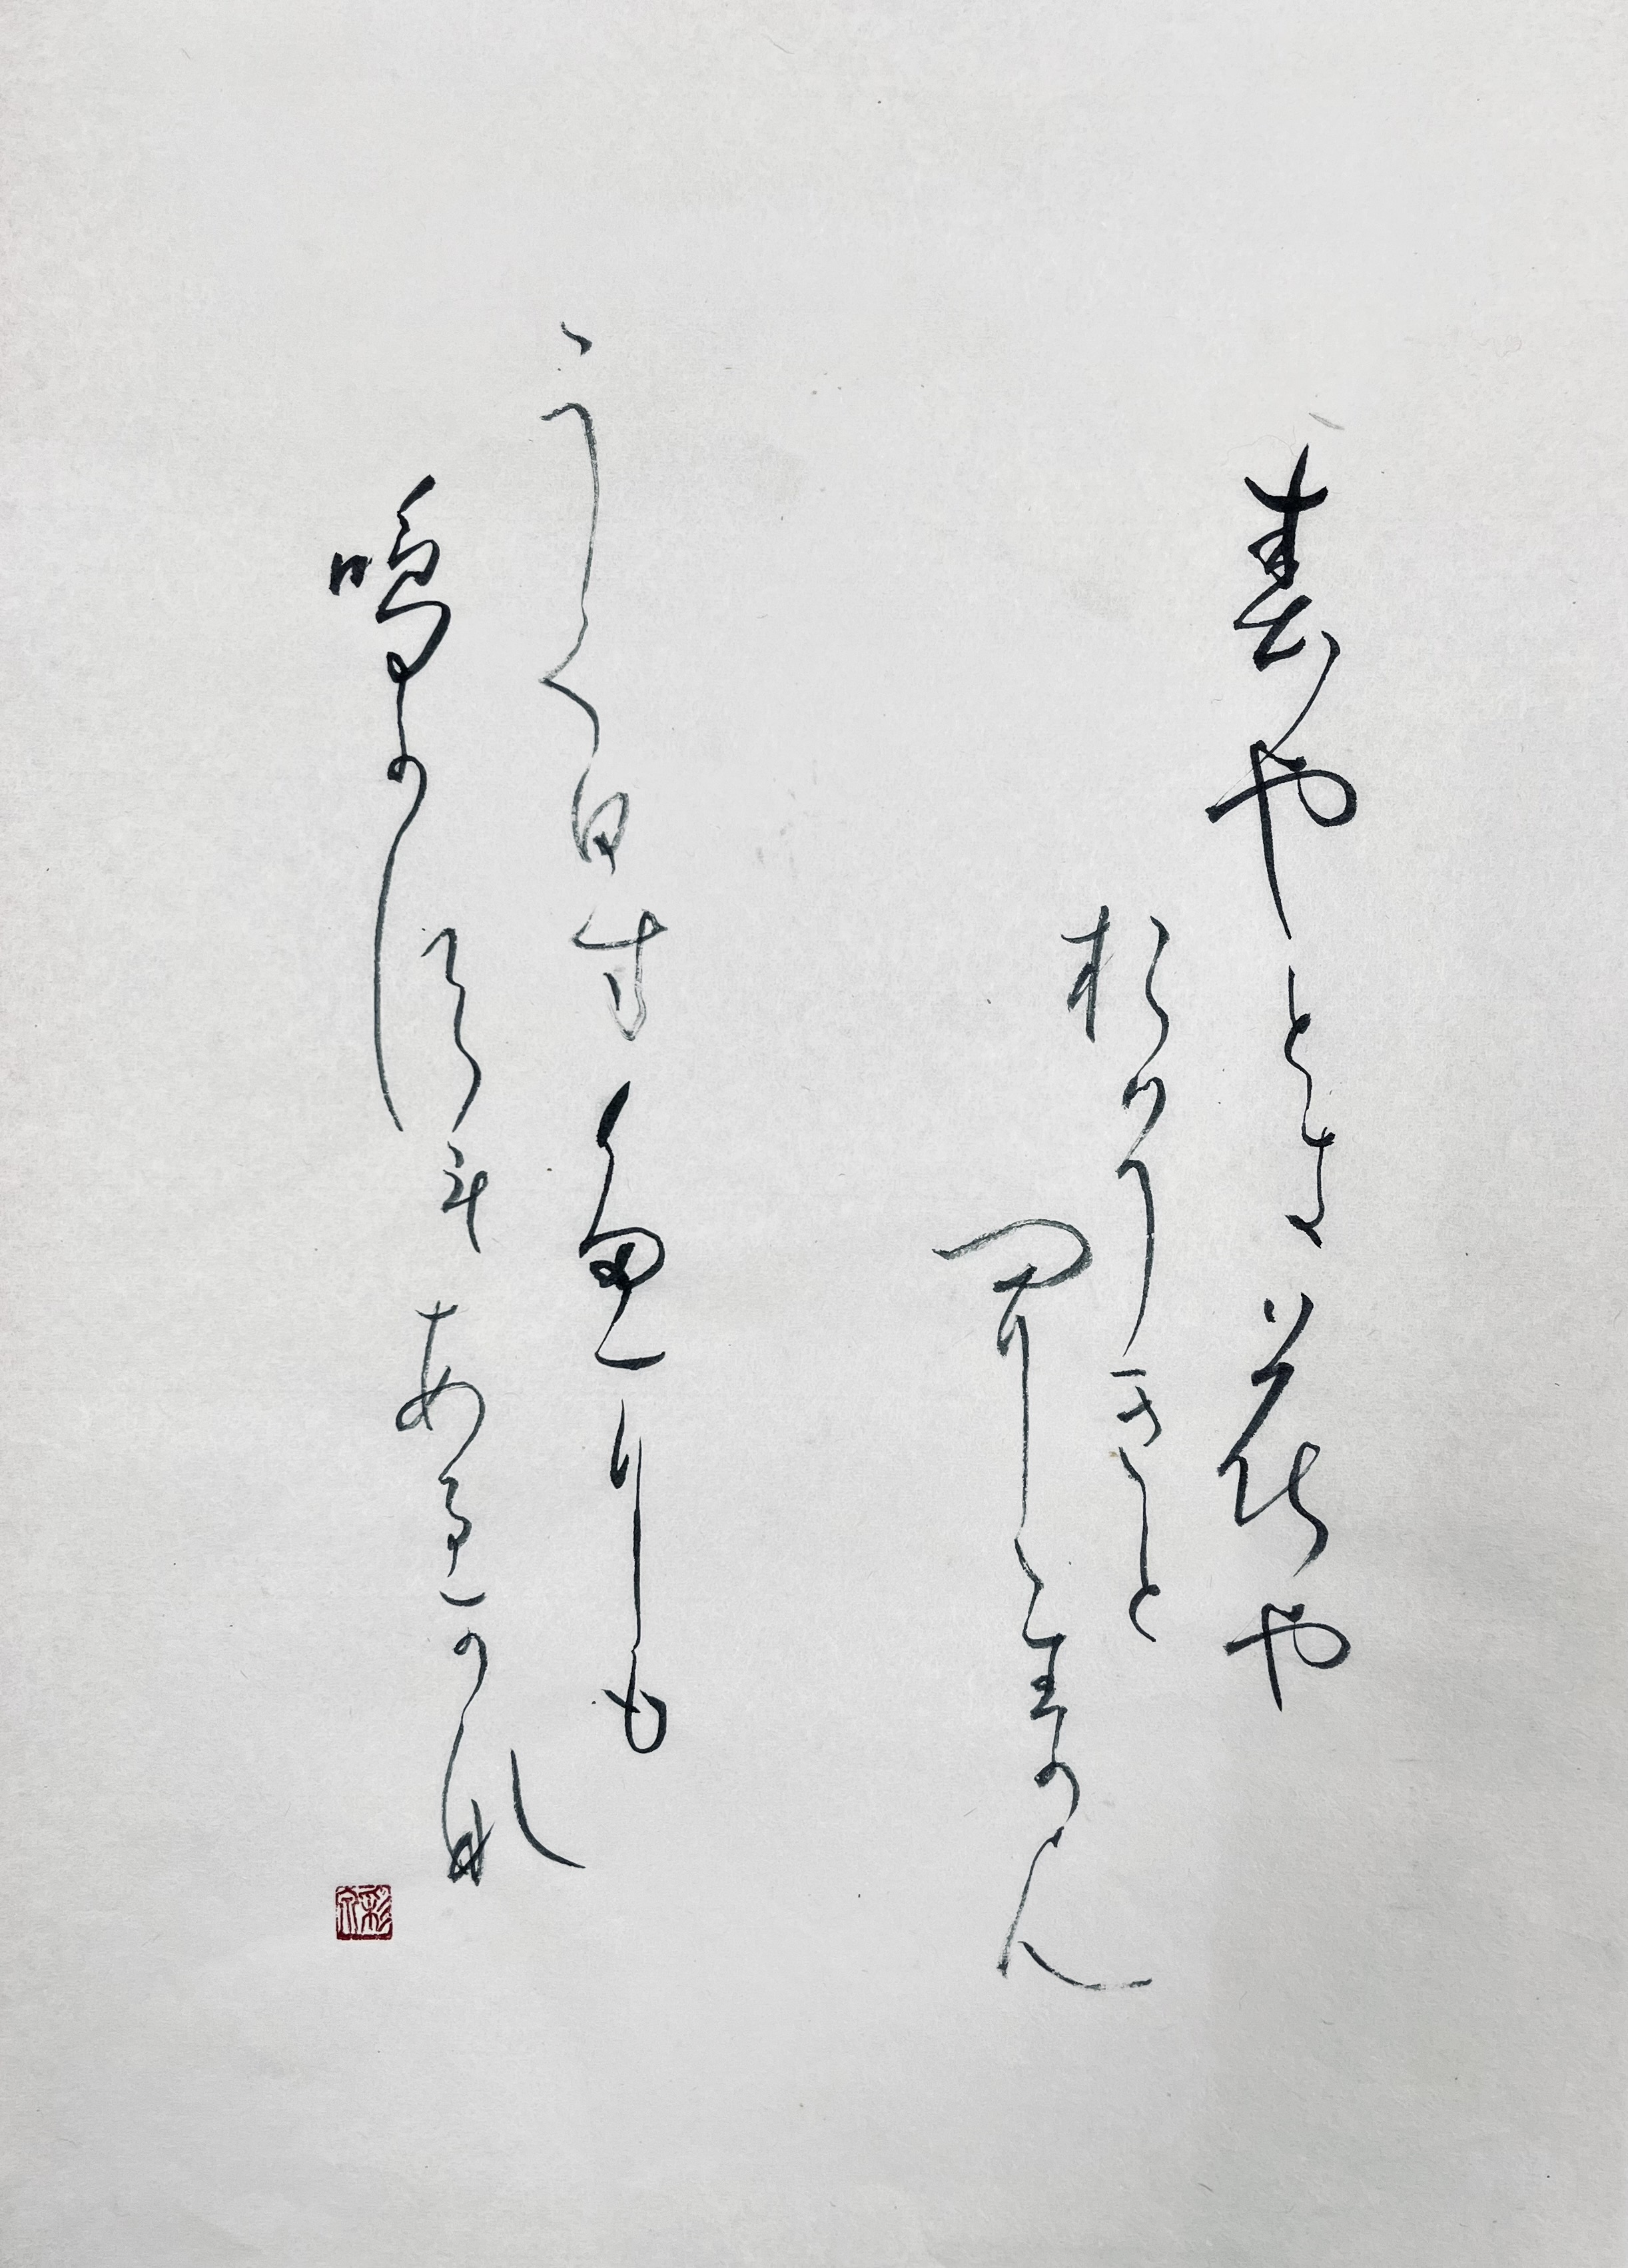 春やとき花や
おそきと
聞きわかん
うくひすたにも
鳴かすもあるかな